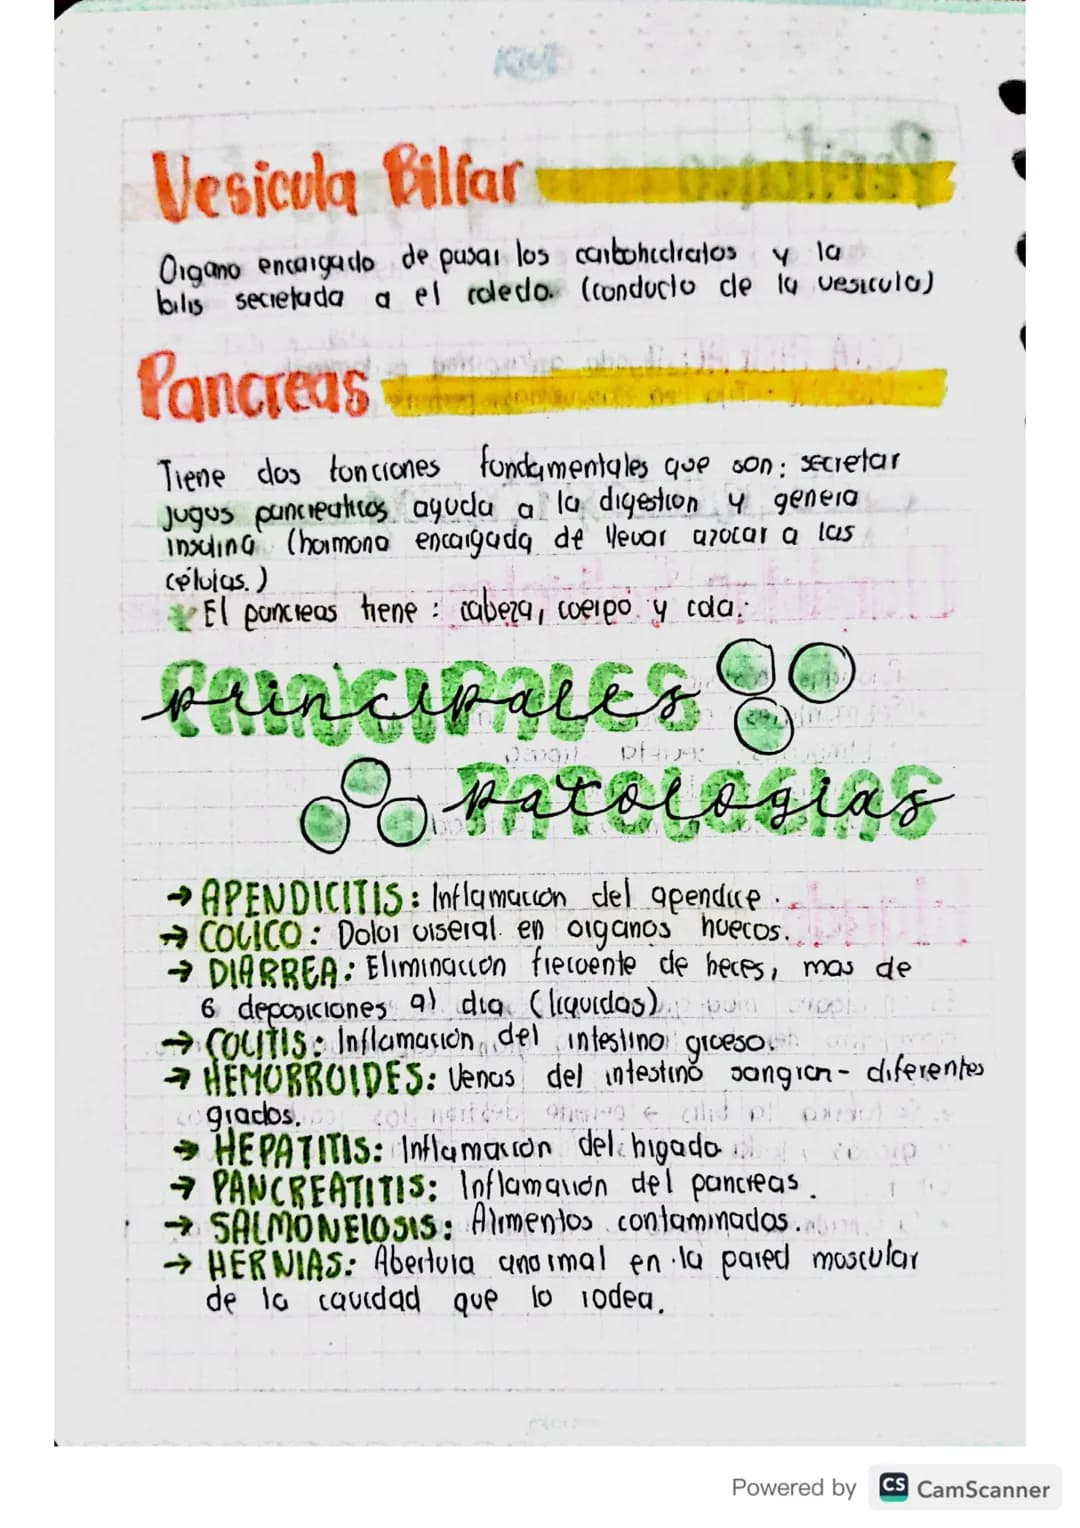 Vesicula Biliar
Organo encargado de pasar los carbohidratos y la
bilis secretada a el coledo. (conducto de la vesicula)
Pancreas
Tiene dos fonciones fundamentales que son: secretar
jugos pancreaticos ayuda a la digestion y genera
insulina (hormona encargada de llevar azocar a las
células.)
El pancreas tiene: cabeza, coerpo y cola.
PRINCIPALES
principales
PATOLOGIAS
patologias
→ APENDICITIS: Inflamación del apendice.
→ COLICO: Dolor viseral en organos huecos.
→ DIARREA: Eliminacción frecuente de heces, mas de
6 deposiciones al dia (liquidas)
→ COLITIS: Inflamación del intestino groeso.
→ HEMORROIDES: Venas del intestino sangran - diferentes
grados.
→ HEPATITIS: Inflamación del higado
→ PANCREATITIS: Inflamación del pancreas.
→ SALMONELOSIS: Alimentos contaminados.
→ HERNIAS: Abertura anormal en la pared moscular
de la cavidad que lo rodea.
Powered by CS CamScanner